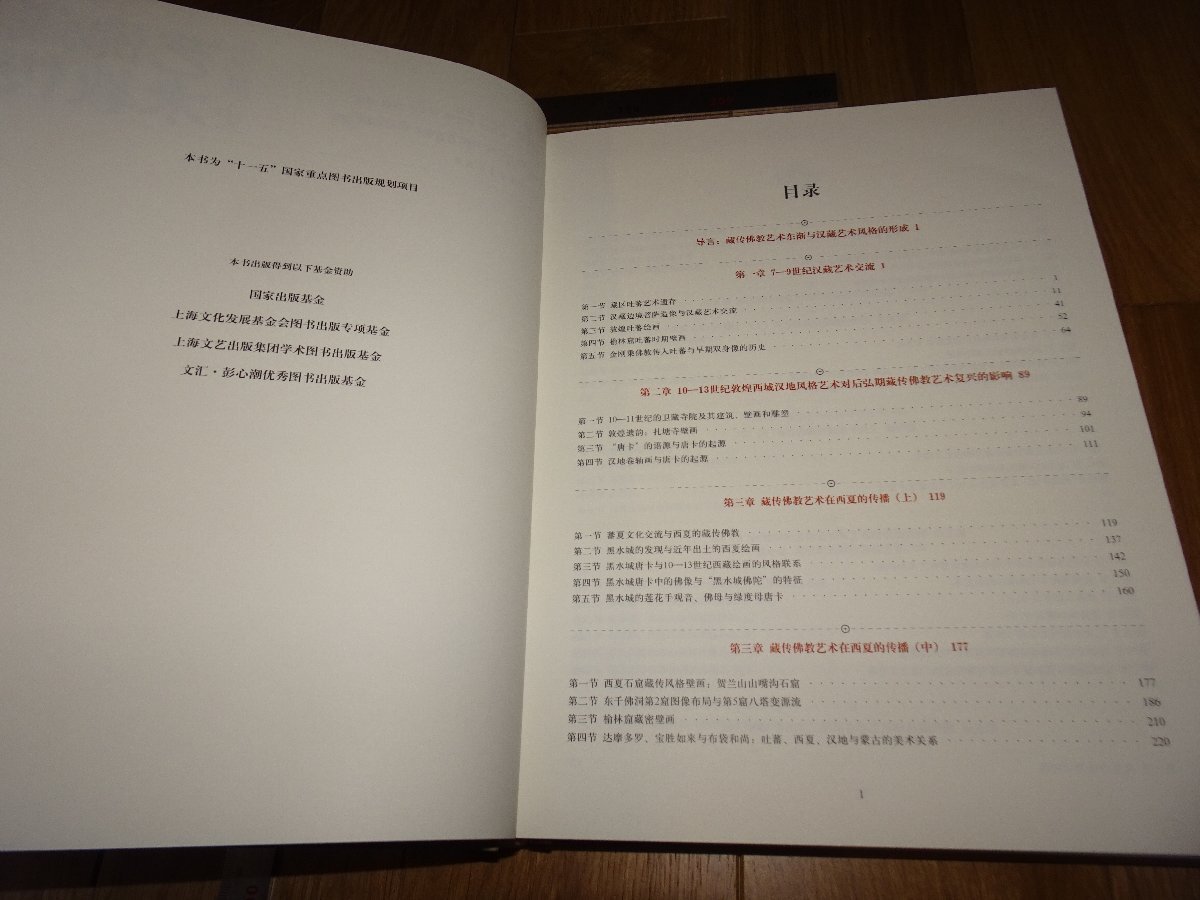 本书为“十一五”国家重点图书出版规划项目
本书出版得到以下基金资助
国家出版基金
上海文化发展基金会图书出版专项基金
上海文艺出版集团学术图书出版基金
文汇·彭心潮优秀图书出版基金
目录
导言：藏传佛教艺术东渐与汉藏艺术风格的形成 1
第一章 7—9世纪汉藏艺术交流 1
第一节 藏区吐蕃艺术遗存 1
第二节 汉藏边境菩萨造像与汉藏艺术交流 11
第三节 敦煌吐蕃绘画 41
第四节 榆林窟吐蕃时期壁画 52
第五节 金刚乘佛教传入吐蕃与早期双身像的历史 64
第二章 10—13世纪敦煌西域汉地风格艺术对后弘期藏传佛教艺术复兴的影响 89
第一节 10—11世纪的卫藏寺院及其建筑、壁画和雕塑 89
第二节 敦煌遗韵：扎塘寺壁画 94
第三节 “唐卡”的语源与唐卡的起源 101
第四节 汉地卷轴画与唐卡的起源 111
第三章 藏传佛教艺术在西夏的传播（上） 119
第一节 蕃夏文化交流与西夏的藏传佛教 119
第二节 黑水城的发现与近年出土的西夏绘画 137
第三节 黑水城唐卡与10—13世纪西藏绘画的风格联系 142
第四节 黑水城唐卡中的佛像与“黑水城佛陀”的特征 150
第五节 黑水城的莲花手观音、佛母与绿度母唐卡 160
第三章 藏传佛教艺术在西夏的传播（中） 177
第一节 西夏石窟藏传风格壁画：贺兰山山嘴沟石窟 177
第二节 东千佛洞第2窟图像布局与第5窟八塔变源流 186
第三节 榆林窟藏密壁画 210
第四节 达摩多罗、宝胜如来与布袋和尚：吐蕃、西夏、汉地与蒙古的美术关系 220
1